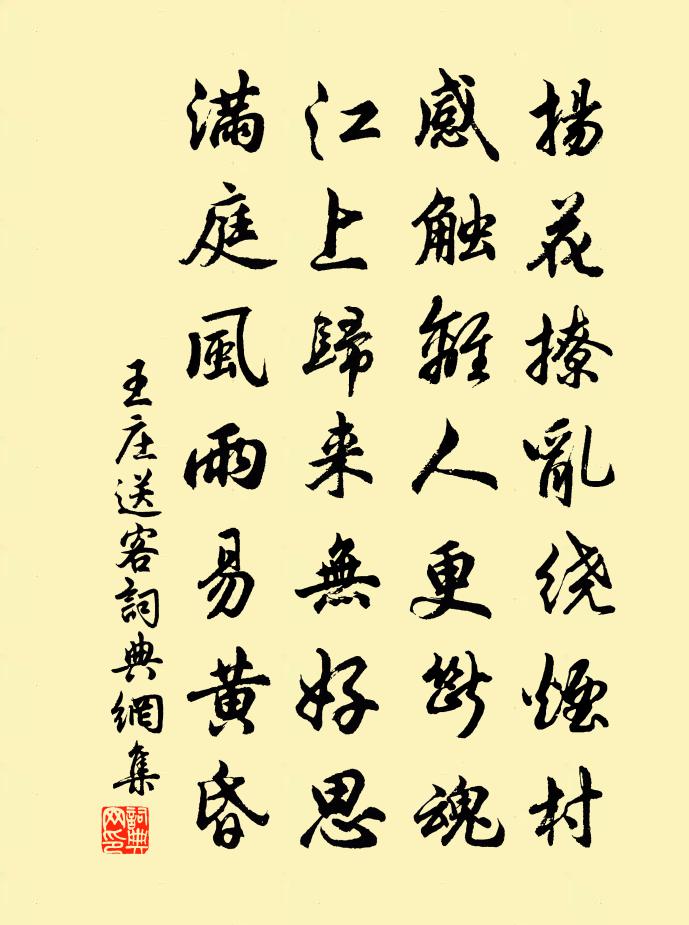 揚花撩亂绕煙村
感触離人更斷魂
江上歸来無好思
滿庭風雨易黄昏
王庄送客詞典網集
詞典网印